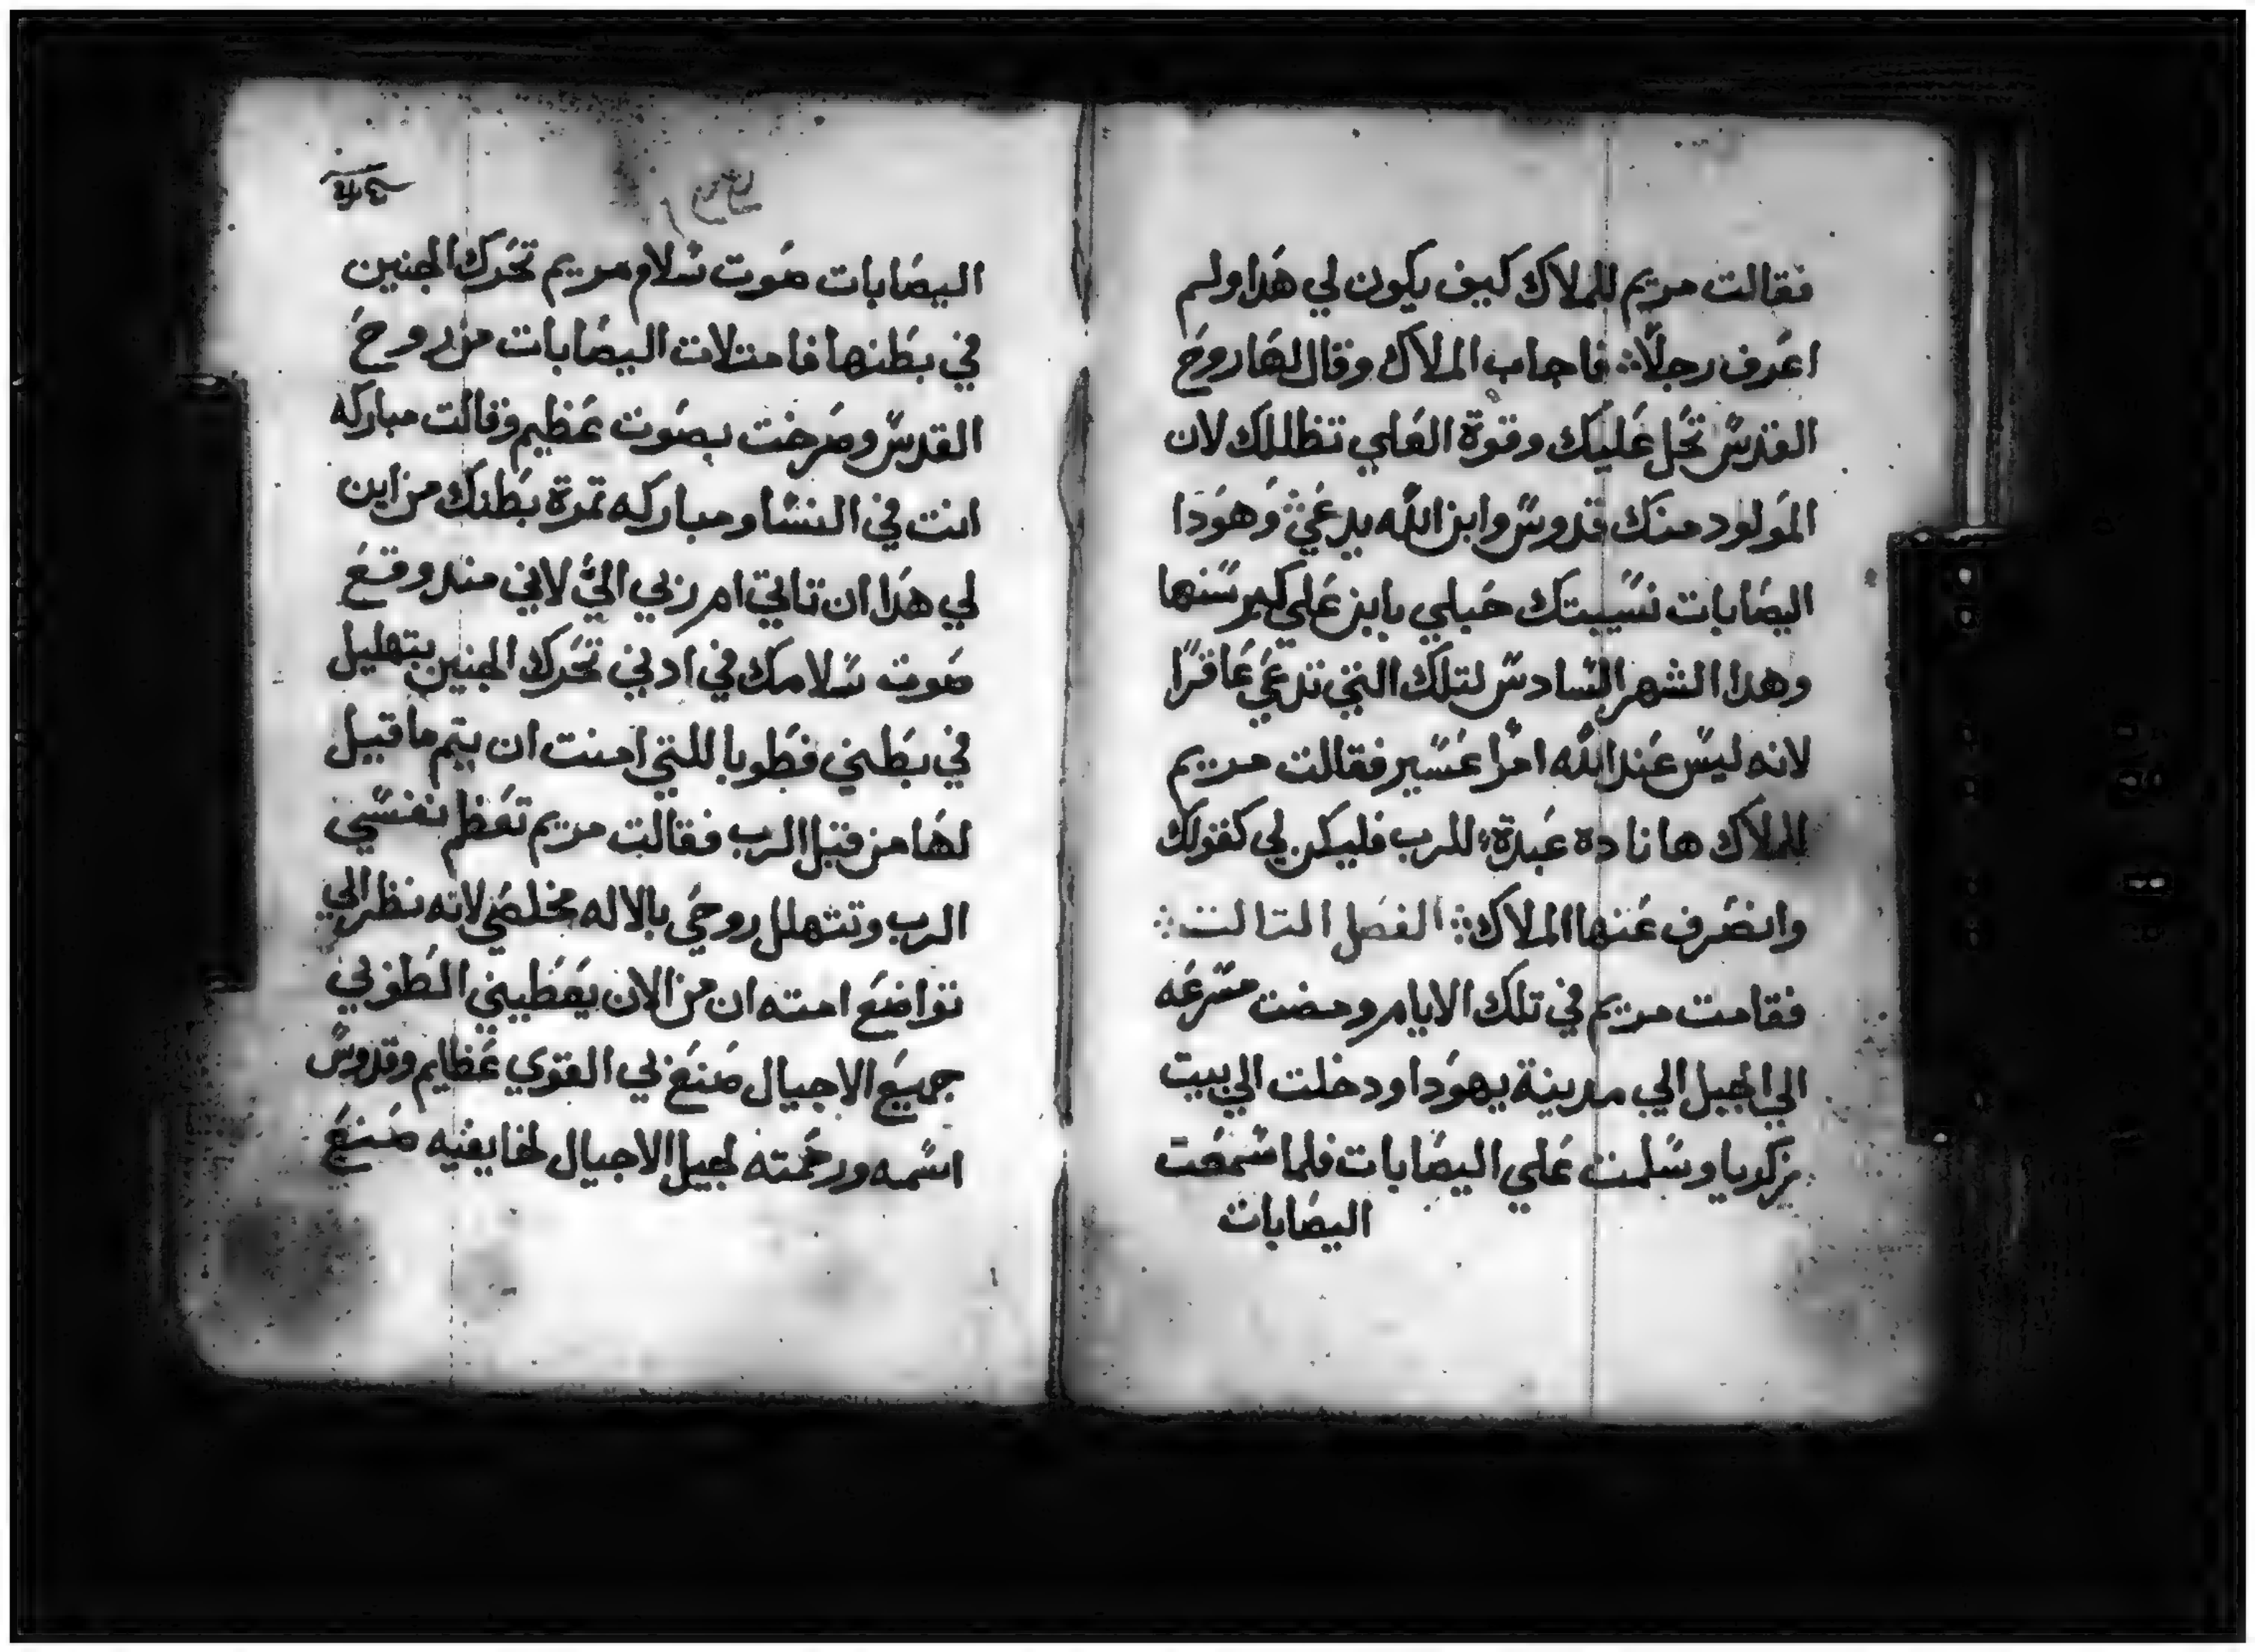 فقالت مريم للملاك كيف يكون لي هدا ولم
اعرف رجلاً ؞ فاجاب الملاك وقال لها روح
القدس تحل عليك وقوة العلي تظللك لان
المولود منك قدوس وابن الله يدعي ؞ وهودا
اليصابات نسيبتك حبلي بابن علي كبر سنها
وهدا الشهر السادس لتلك التي تدعي عاقرًا
لانه ليس عند الله امرا عسير فقالت مريم
للملاك هانا ده عبدة للرب فليكن لي كقولك
وانصرف عنها الملاك ؞ الفصل التالت ؞
فقامت مريم في تلك الايام ومضت مسرعه
الي الجبل الي مدينة يهودا ودخلت الي بيت
زكريا وسلمت علي اليصابات فلما سمعت
اليصابات
اليصابات صوت سلام مريم تحرك الجنين
في بطنها فامتلات اليصابات من روح
القدس وصرخت بصوت عظيم وقالت مباركه
انت في النسا ومباركه تمرة بطنك من اين
لي هدا ان تاتي ام ربي الي لاني مند وقع
صوت سلامك في ادني تحرك الجنين بتهليل
في بطني فطوبا للتي امنت ان يتم ما قيل
لها من قبل الرب فقالت مريم تعظم نفسي
الرب وتتهلل روحي بالاله مخلصي لانه نظر الي
تواضع امته ان من الان يعطيني الطوبي
جميع الاجيال صنع لي القوي عظايم وقدوس
اسمه ورحمته لجيل الاجيال لخايفيه صنع